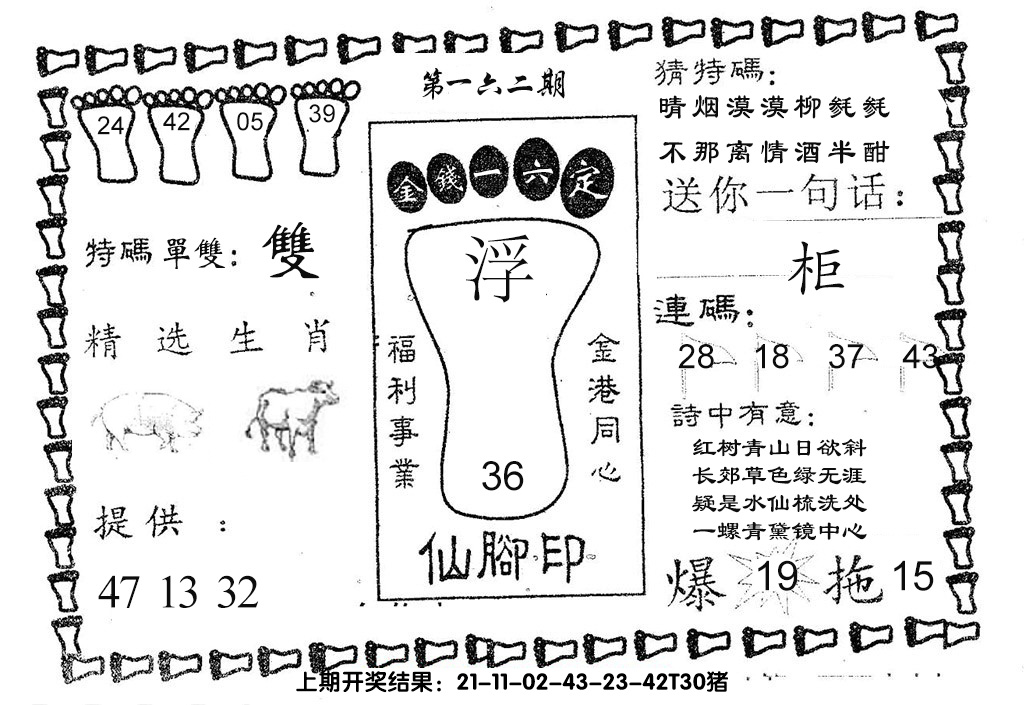 第一六二期
24 42 05 39
特碼單雙：雙
精选生肖
提供：
47 13 32
金錢一六定
浮
福利事業
金港同心
36
仙腳印
猜特碼：
晴烟漠漠柳毵毵
不那离情酒半酣
送你一句话：
柜
連碼：
28 18 37 43
詩中有意：
红树青山日欲斜
长郊草色绿无涯
疑是水仙梳洗处
一螺青黛镜中心
爆 19 拖 15
上期开奖结果：21-11-02-43-23-42T30猪